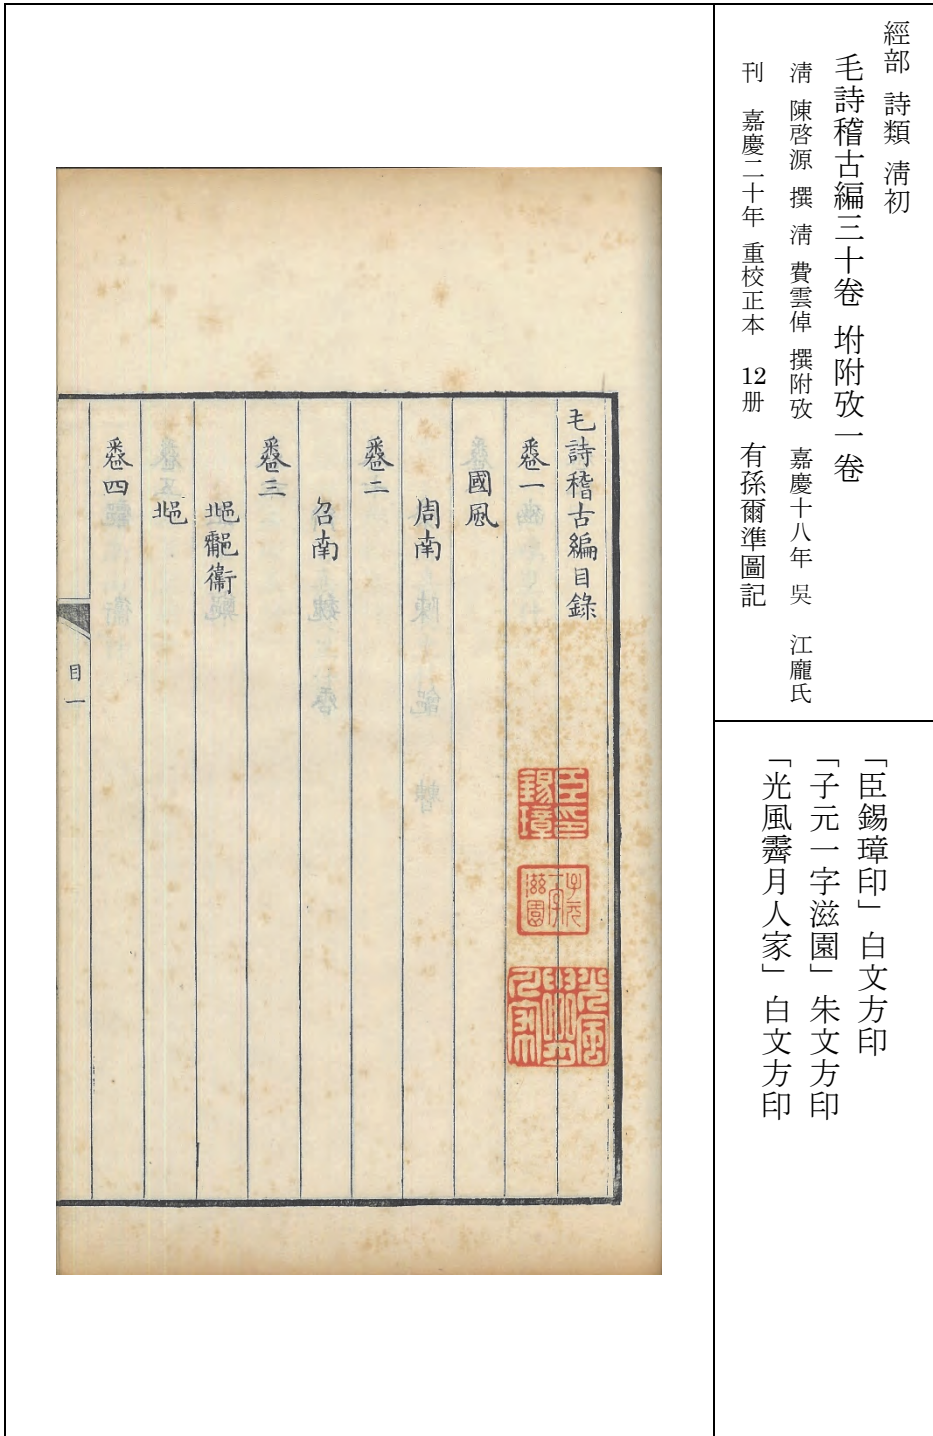 經部 詩類 淸初
毛詩稽古編三十卷 坿附攷一卷
淸 陳啓源 撰 淸 費雲倬 撰附攷 嘉慶十八年 吳 江龐氏
刊 嘉慶二十年 重校正本 12册 有孫爾準圖記
「臣錫璋印」白文方印
「子元一字滋園」朱文方印
「光風霽月人家」白文方印
毛詩稽古編目錄
卷一
國風
周南
卷二
召南
卷三
邶鄘衞
邶
卷四
目一
臣印錫璋
子元一字滋園
光風霽月人家